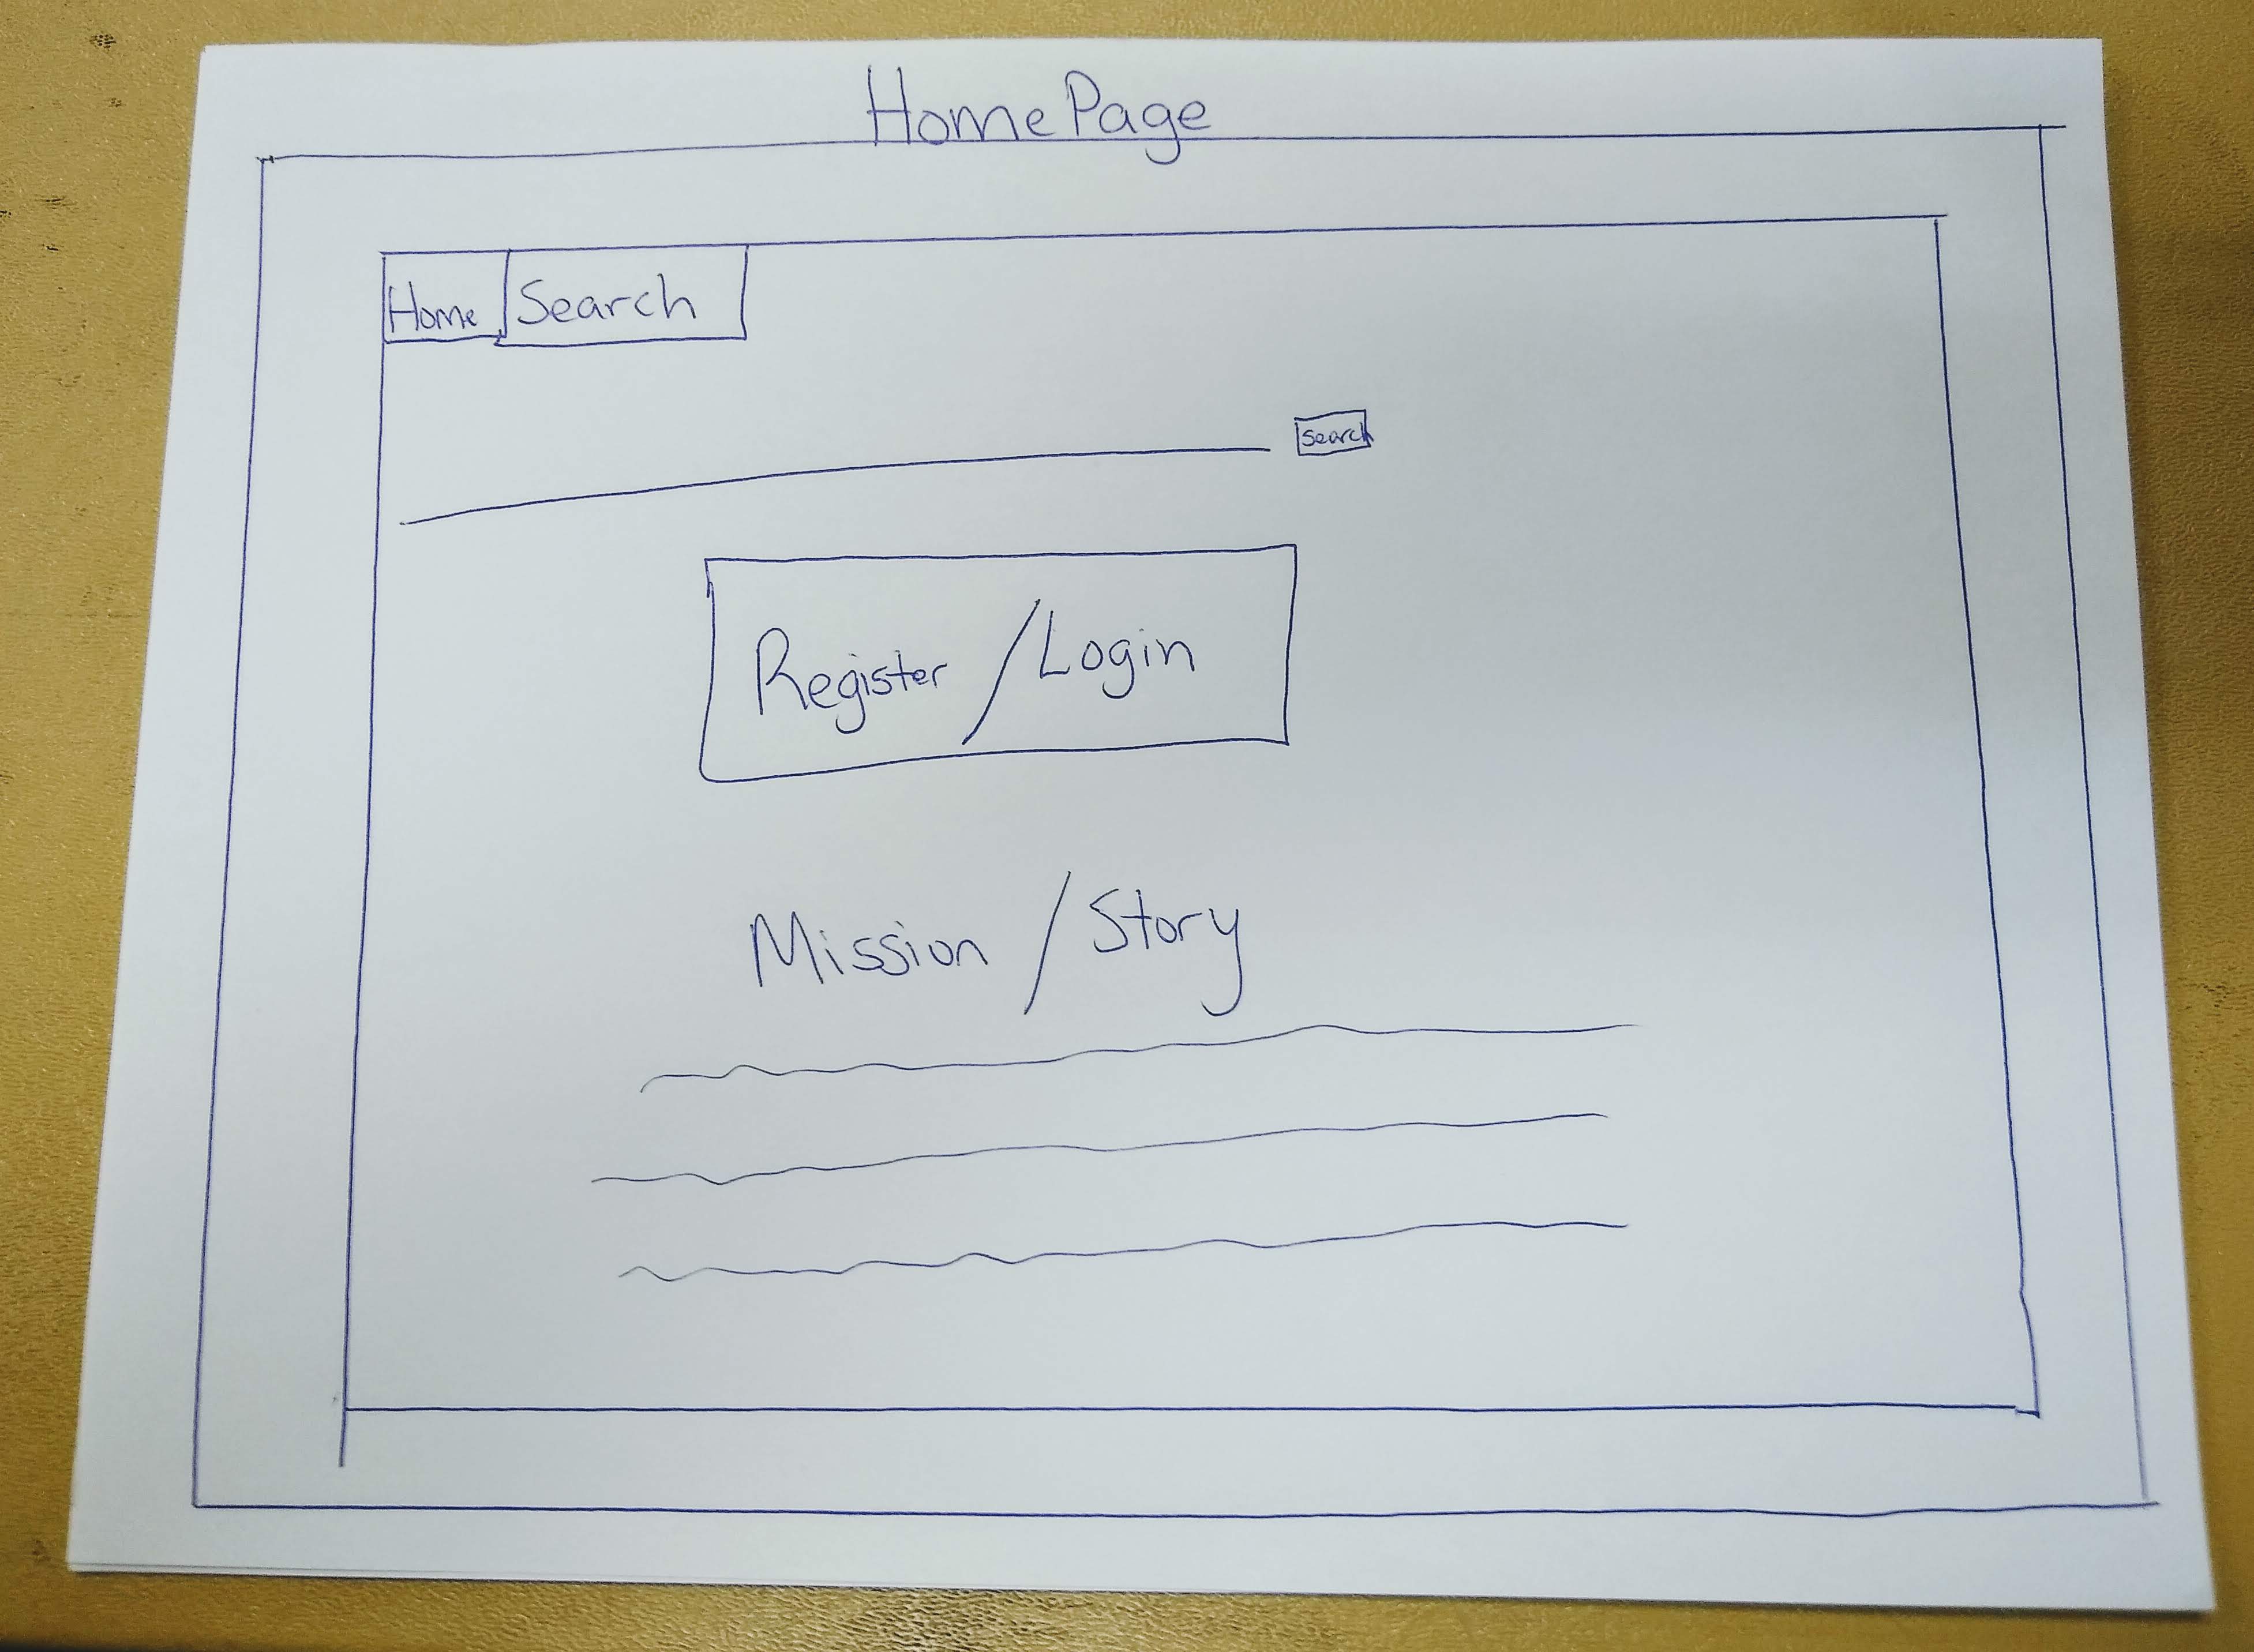 Home Page
Home Search
Search
Register / Login
Mission / Story